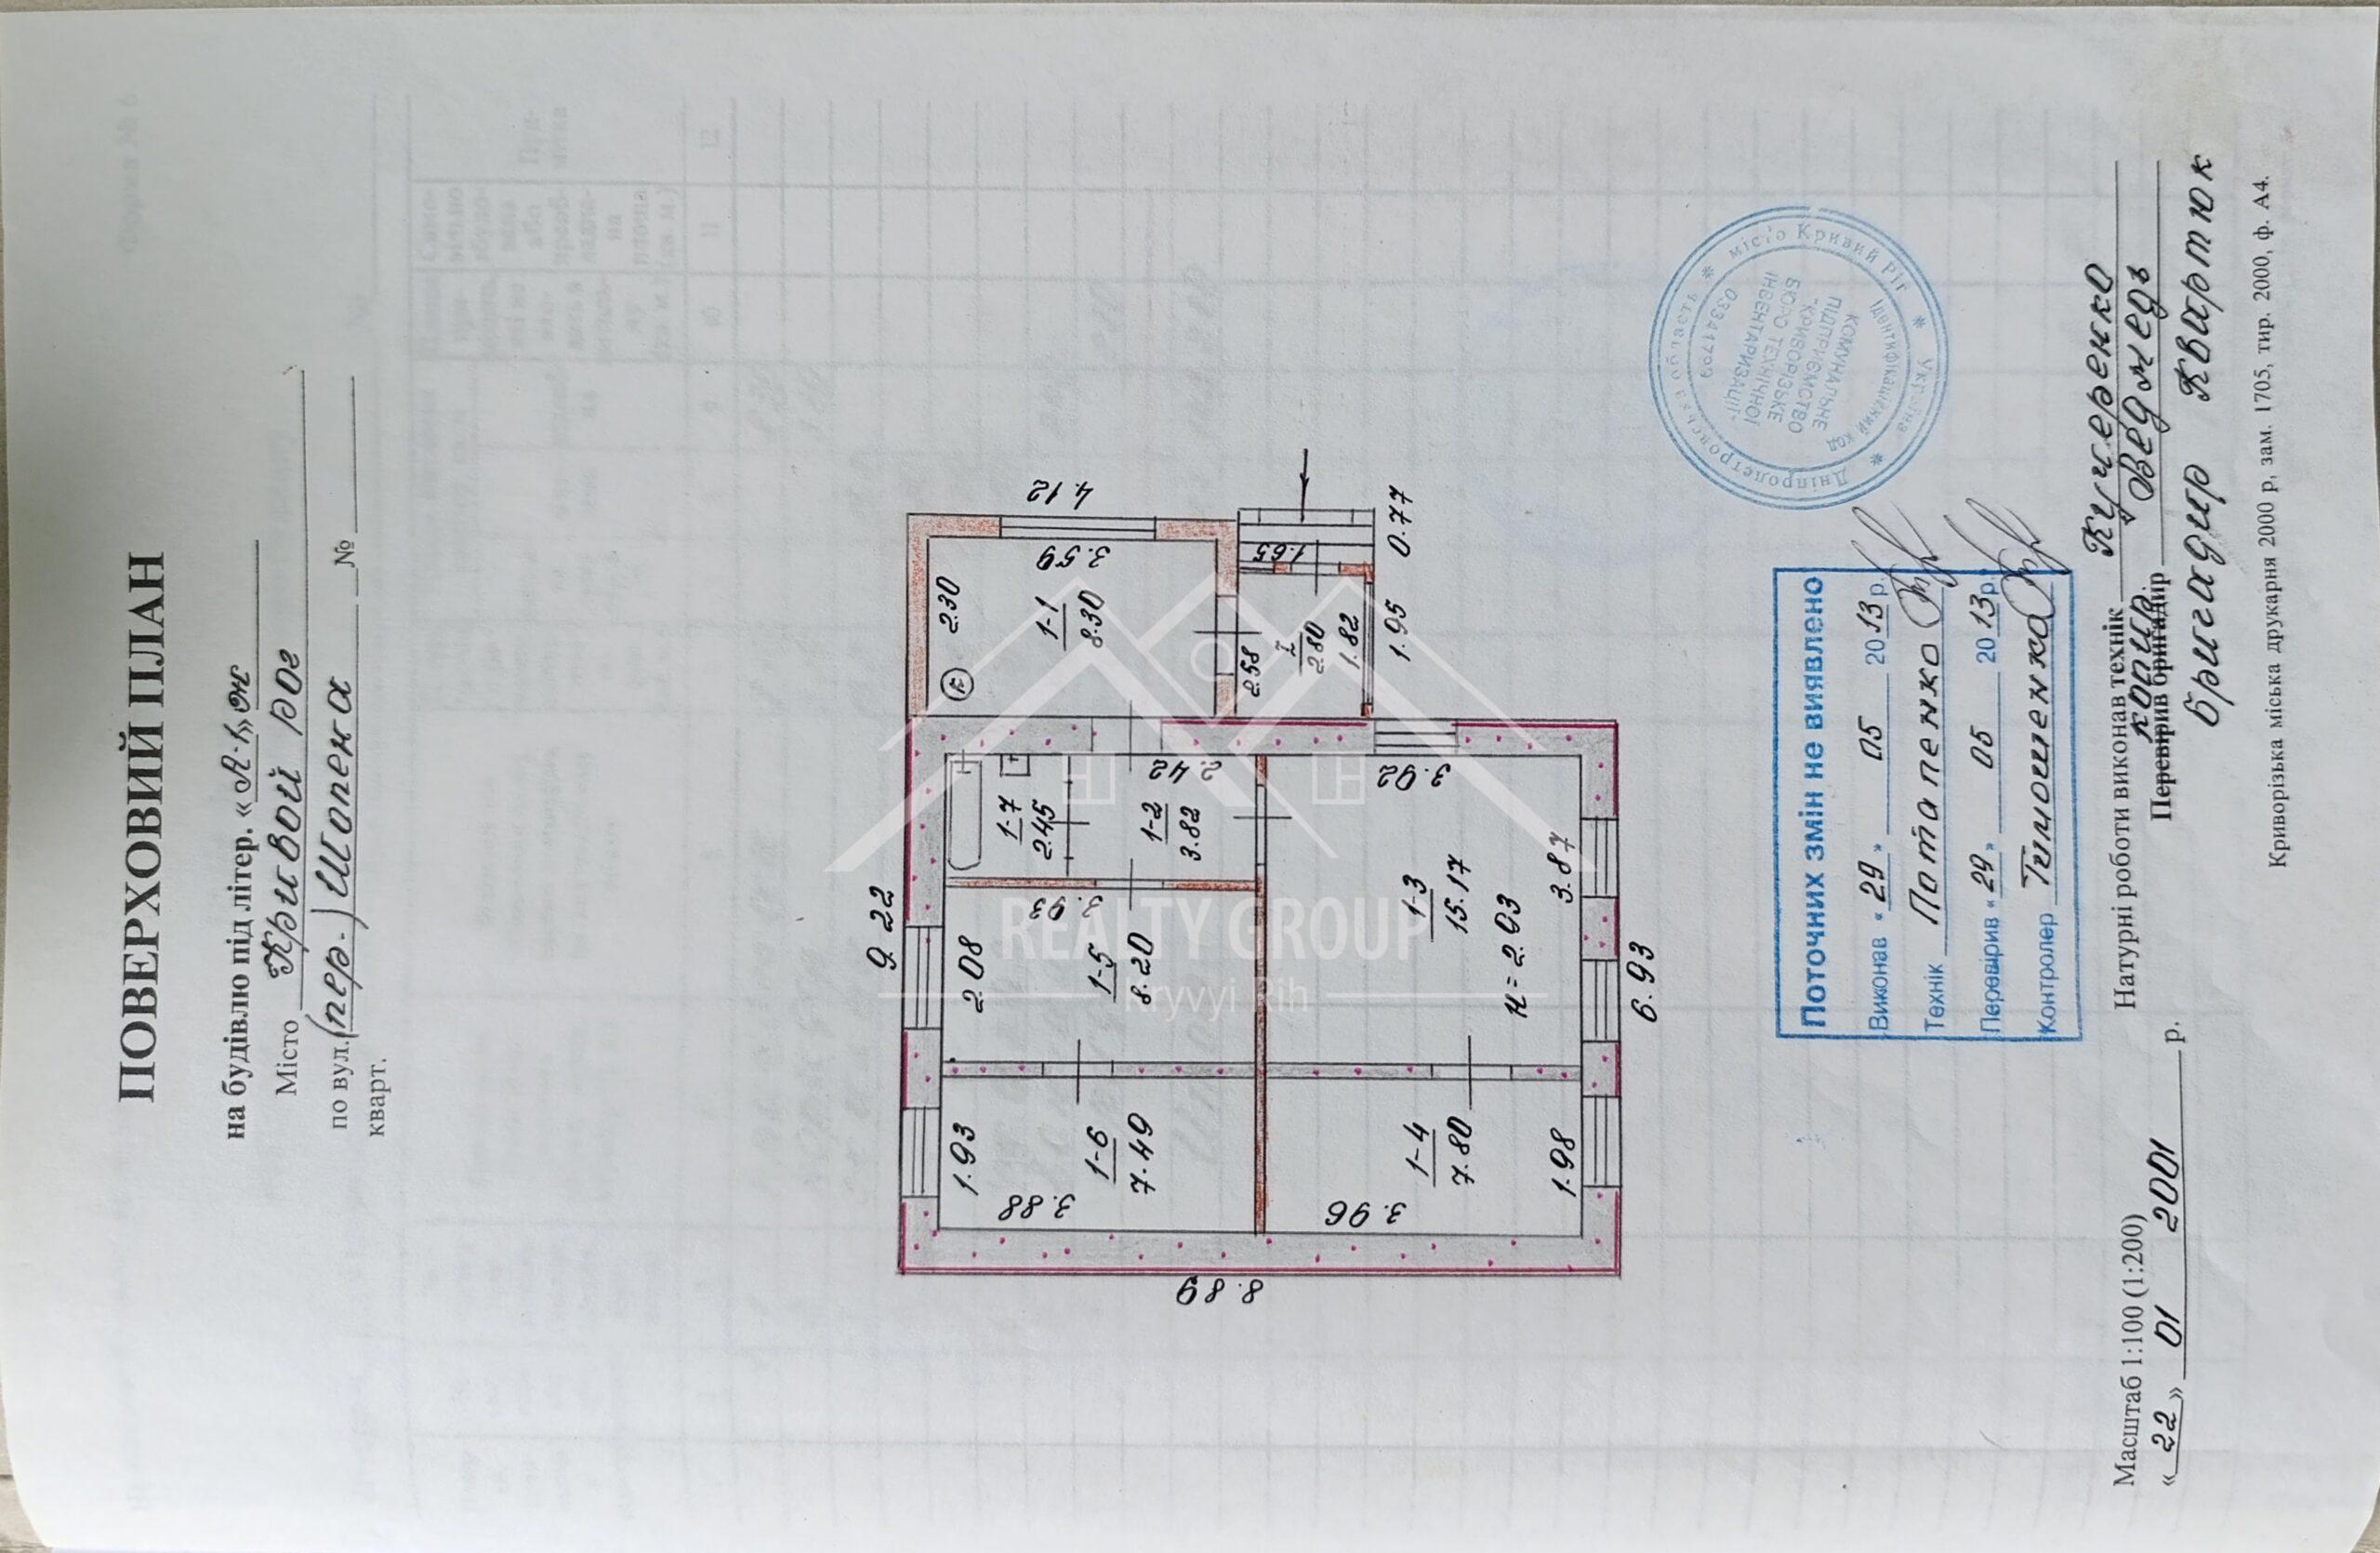 ПОВЕРХОВИЙ ПЛАН
на будівлю під літер. «А-1» ж
Місто Кривой рог
по вул. (пер.) Шопена №
кварт.
9.22
1.93
2.08
2.30
К
4.12
3.59
1-1
8.30
1-7
2.45
2.42
1-2
3.82
3.93
1-5
8.20
1-6
7.49
3.88
8.89
2.58
I
2.80
1.82
1.65
1.95
0.77
3.92
1-3
15.17
н = 2.93
3.87
1-4
7.80
3.96
1.98
6.93
REALTY GROUP
Kryvyi Rih
Поточних змін не виявлено
Виконав «29» 05 2013 р.
Технік Потапенко
Перевірив «29» 05 2013 р.
Контролер Тимошенко
Україна * Дніпропетровська область * місто Кривий Ріг *
Ідентифікаційний код
КОМУНАЛЬНЕ
ПІДПРИЄМСТВО
"КРИВОРІЗЬКЕ
БЮРО ТЕХНІЧНОЇ
ІНВЕНТАРИЗАЦІЇ"
03341799
Масштаб 1:100 (1:200)
«22» 01 2001 р.
Натурні роботи виконав технік Кучеренко
копир. Ведмедь
Перевірив бригадир
бригадир Квартюк
Криворізька міська друкарня 2000 р, зам. 1705, тир. 2000, ф. А4.